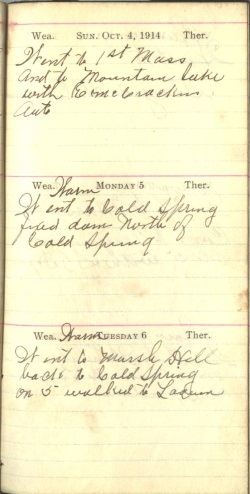 Wea. SUN. OCT. 4, 1914 Ther.
Went to 1st Mass
and to Mountain Lake
with E McCrackins
Auto
Wea. Warm MONDAY 5 Ther.
Went to Cold Spring
fixed dam North of
Cold Spring
Wea. Warm TUESDAY 6 Ther.
Went to Marsh Hill
back to Cold Spring
on 5 walked to